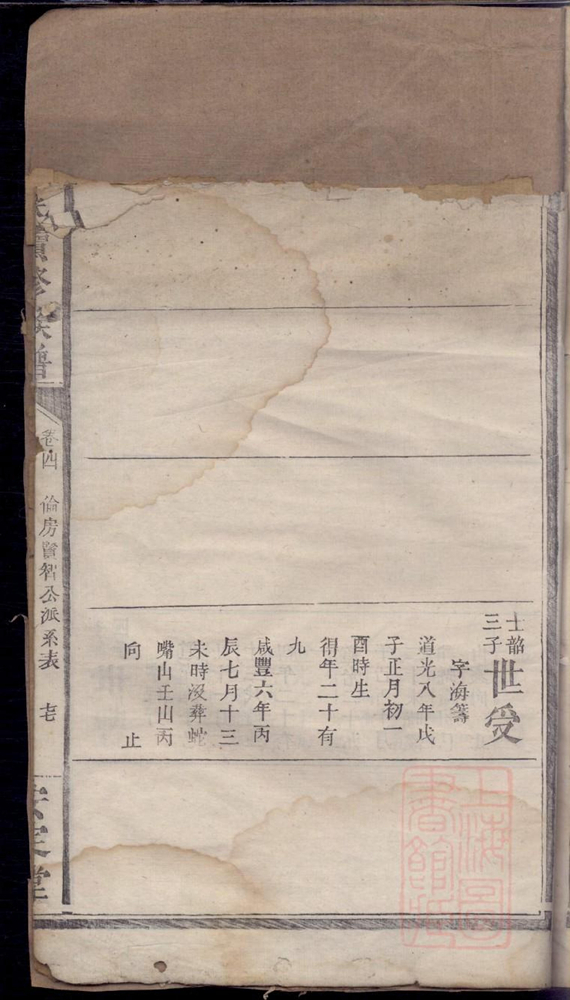 士韶
三子
世受
字海籌
道光八年戊
子正月初一
酉時生
得年二十有
九
咸豐六年丙
辰七月十三
未時沒葬蛇
嘴山壬山丙
向 止
續修族譜
卷四 倫房賢智公派系表 七
安定堂
上海圖
書館藏